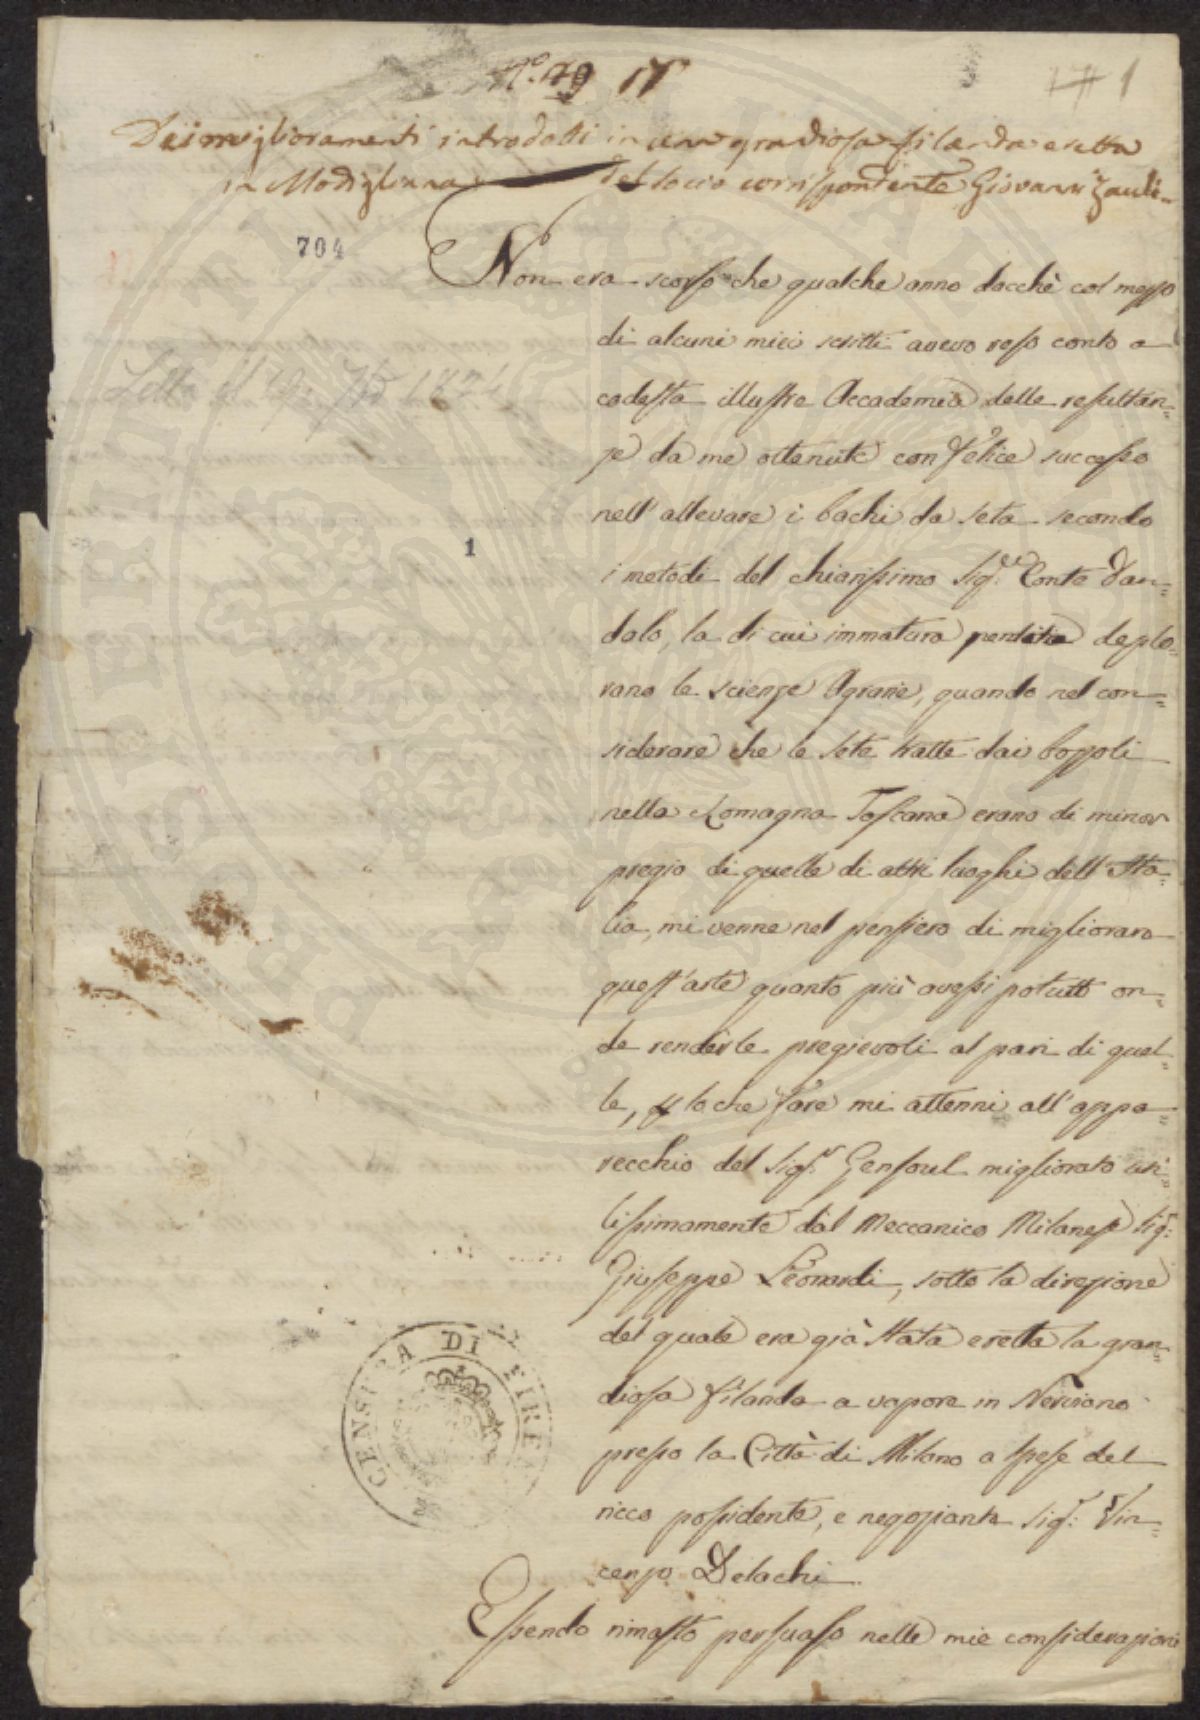 N.° 79 17
1
Dei miglioramenti introdotti in una grandiosa filanda eretta
in Modigliana del socio corrispondente Giovanni Zauli
704
Non era scorso che qualche anno dacchè col mezzo
di alcuni miei scritti avevo reso conto a
codesta illustre Accademia delle resultan=
ze da me ottenute con felice successo
nell'allevare i bachi da seta secondo
i metodi del chiarissimo Sig.re Conte Dan=
dalo, la di cui immatura perdita deplo=
rano le scienze Agrarie, quando nel con=
siderare che le sete tratte dai bozzoli
nella Romagna Toscana erano di minor
pregio di quelle di altri luoghi dell'Ita=
lia, mi venne nel pensiero di migliorare
quest'arte quanto più avessi potuto on=
de renderle pregievoli al pari di quel=
le, lo che fare mi attenni all'appa=
recchio del Sig.r Gensoul migliorato uti=
lissimamente dal Meccanico Milanese Sig.r
Giuseppe Leonardi, sotto la direzione
del quale era già stata eretta la gran=
diosa filanda a vapore in Nerviano
presso la Città di Milano a spese del
ricco possidente, e negoziante Sig.r Vin=
cenzo Delachi.
Essendo rimasto persuaso nelle mie considerazioni
Letto il
1
CENSURA DI FIRE
PROSPERITATI PUBLICAE AUGENDAE